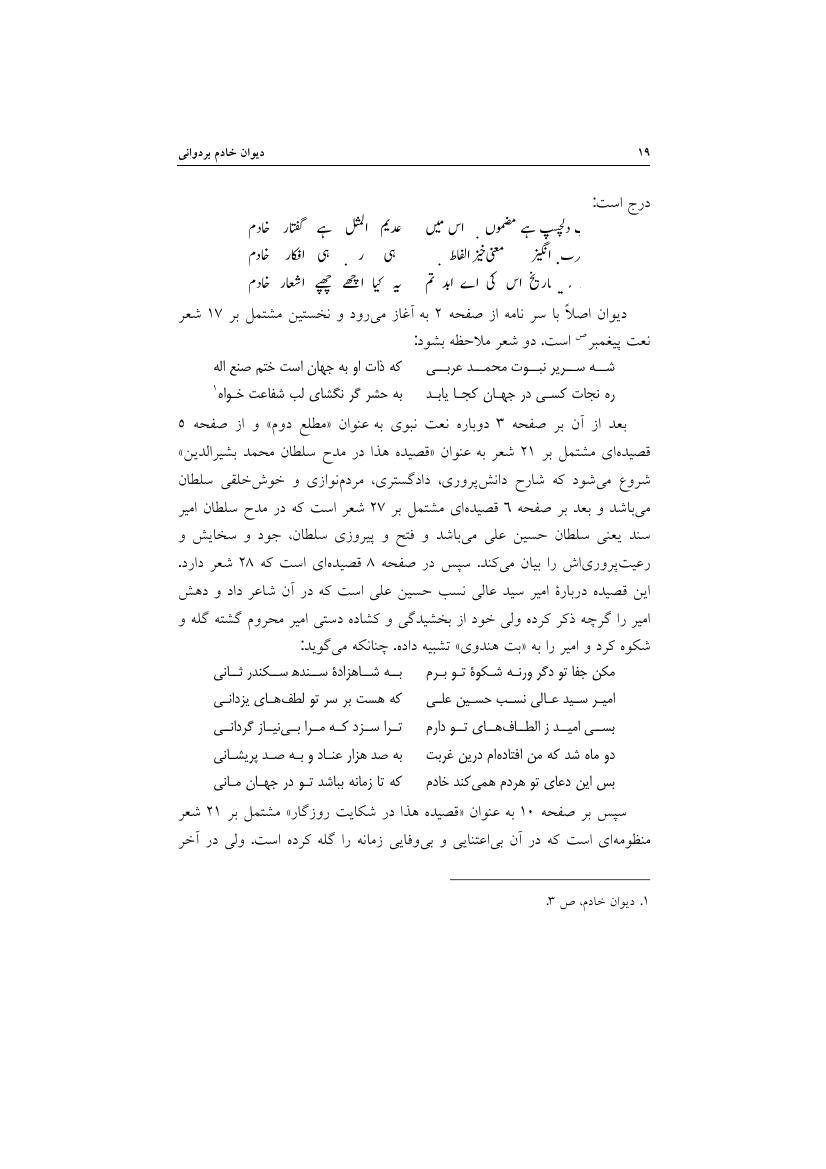 ۱۹ دیوان خادم بردوانی
درج است:
دلچسپ ہے مضموں اس میں عدیم المثل ہے گفتار خادم
انگیز معنی خیز الفاظ ہی ہی افکار خادم
تاریخ اس کی اے ابد تم یہ کیا اچھے چھپے اشعار خادم
دیوان اصلاً با سر نامه از صفحه ۲ به آغاز می‌رود و نخستین مشتمل بر ۱۷ شعر
نعت پیغمبرص است. دو شعر ملاحظه بشود:
شـه سـریر نبـوت محمـد عربـی که ذات او به جهان است ختم صنع اله
ره نجات کسـی در جهـان کجـا یابـد به حشر گر نگشای لب شفاعت خـواه۱
بعد از آن بر صفحه ۳ دوباره نعت نبوی به عنوان «مطلع دوم» و از صفحه ۵
قصیده‌ای مشتمل بر ۲۱ شعر به عنوان «قصیده هذا در مدح سلطان محمد بشیرالدین»
شروع می‌شود که شارح دانش‌پروری، دادگستری، مردم‌نوازی و خوش‌خلقی سلطان
می‌باشد و بعد بر صفحه ۶ قصیده‌ای مشتمل بر ۲۷ شعر است که در مدح سلطان امیر
سند یعنی سلطان حسین علی می‌باشد و فتح و پیروزی سلطان، جود و سخایش و
رعیت‌پروری‌اش را بیان می‌کند. سپس در صفحه ۸ قصیده‌ای است که ۲۸ شعر دارد.
این قصیده دربارهٔ امیر سید عالی نسب حسین علی است که در آن شاعر داد و دهش
امیر را گرچه ذکر کرده ولی خود از بخشیدگی و کشاده دستی امیر محروم گشته گله و
شکوه کرد و امیر را به «بت هندوی» تشبیه داده. چنانکه می‌گوید:
مکن جفا تو دگر ورنـه شـکوهٔ تـو بـرم بـه شـاهزادهٔ سـنده سـکندر ثـانی
امیـر سـید عـالی نسـب حسـین علـی که هست بر سر تو لطف‌هـای یزدانـی
بسـی امیـد ز الطـاف‌هـای تـو دارم تـرا سـزد کـه مـرا بـی‌نیـاز گردانـی
دو ماه شد که من افتاده‌ام درین غربت به صد هزار عنـاد و بـه صـد پریشـانی
بس این دعای تو هردم همی‌کند خادم که تا زمانه بباشد تـو در جهـان مـانی
سپس بر صفحه ۱۰ به عنوان «قصیده هذا در شکایت روزگار» مشتمل بر ۲۱ شعر
منظومه‌ای است که در آن بی‌اعتنایی و بی‌وفایی زمانه را گله کرده است. ولی در آخر
۱. دیوان خادم، ص ۳.